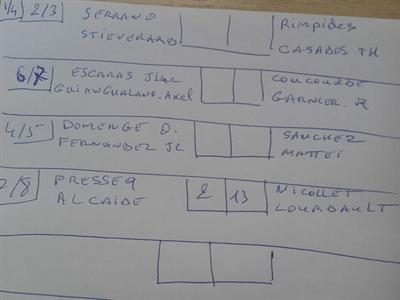 1/4) 2/3 SERRANO RIMPIDES
STIEVENARD CASADOS TH
6/7 ESCARAS JLuc COUCOURDE
GUINGUALAND.AXEL GARNIER.R
4/5 DOMENGE D. SANCHEZ
FERNANDEZ JL MATTEI
/8 PRESSEQ 2 13 NICOLLET
ALCAIDE LOURDAULT